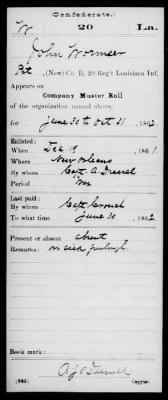 (Confederate.)
W 20 La.
John Wormser
Pvt, (New) Co. B, 20 Reg't Louisiana Inf.
Appears on
Company Muster Roll
of the organization named above,
for June 30 to Oct 31, 1862.
Enlisted:
When Dec 19, 1861
Where New Orleans
By whom Capt. A.
Period War
Last paid:
By whom Capt.
To what time June 30, 1862.
Present or absent absent
Remarks: on sick furlough.
Book mark:
(642) Copyist.